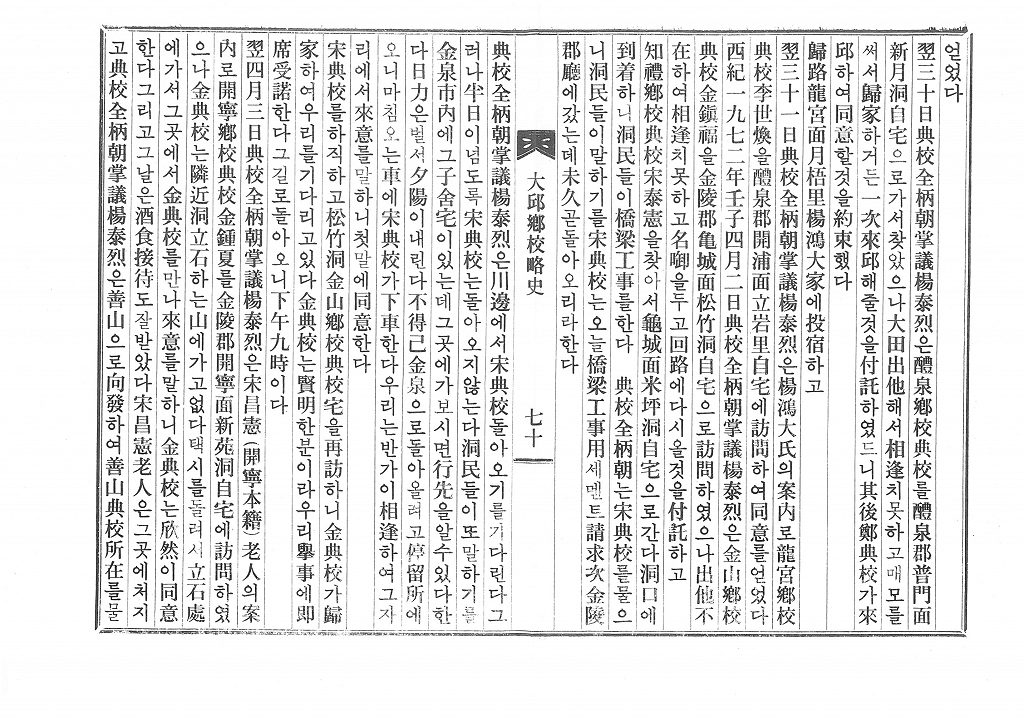 얻었다
翌三十日典校全柄朝掌議楊泰烈은醴泉鄕校典校를醴泉郡普門面
新月洞自宅으로가서찾았으나大田出他해서相逢치못하고매모를
써서歸家하거든一次來邱해줄것을付託하였드니其後鄭典校가來
邱하여同意할것을約束했다
歸路龍宮面月梧里楊鴻大家에投宿하고
翌三十一日典校全柄朝掌議楊泰烈은楊鴻大氏의案內로龍宮鄕校
典校李世煥을醴泉郡開浦面立岩里自宅에訪問하여同意를얻었다
西紀一九七二年壬子四月二日典校全柄朝掌議楊泰烈은金山鄕校
典校金鎭福을金陵郡亀城面松竹洞自宅으로訪問하였으나出他不
在하여相逢치못하고名啣을두고回路에다시올것을付託하고
知禮鄕校典校宋泰憲을찾아서龜城面米坪洞自宅으로간다洞口에
到着하니洞民들이橋梁工事를한다 典校全柄朝는宋典校를물으
니洞民들이말하기를宋典校는오늘橋梁工事用세멘트請求次金陵
郡廳에갔는데未久곧돌아오리라한다
大邱鄕校略史 七十
典校全柄朝掌議楊泰烈은川邊에서宋典校돌아오기를기다린다그
러나半日이념도록宋典校는돌아오지않는다洞民들이또말하기를
金泉市內에그子舍宅이있는데그곳에가보시면行先을알수있다한
다日力은벌서夕陽이내린다不得己金泉으로돌아올려고停留所에
오니마침오는車에宋典校가下車한다우리는반가이相逢하여그자
리에서來意를말하니첫말에同意한다
宋典校를하직하고松竹洞金山鄕校典校宅을再訪하니金典校가歸
家하여우리를기다리고있다金典校는賢明한분이라우리擧事에即
席受諾한다그길로돌아오니下午九時이다
翌四月三日典校全柄朝掌議楊泰烈은宋昌憲(開寧本籍)老人의案
內로開寧鄕校典校金鍾夏를金陵郡開寧面新苑洞自宅에訪問하였
으나金典校는隣近洞立石하는山에가고없다택시를돌려서立石處
에가서그곳에서金典校를만나來意를말하니金典校는欣然이同意
한다그리고그날은酒食接待도잘받았다宋昌憲老人은그곳에처지
고典校全柄朝掌議楊泰烈은善山으로向發하여善山典校所在를물